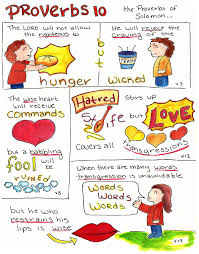 PROVERBS 10
the Proverbs of
Solomon...
The LORD will not allow
the righteous to
hunger
but
He will reject the
craving of the
wicked
v3
The wise heart
will receive
Commands
but a babbling
fool will
be
ruined
v8
Hatred stirs up
strife but
LOVE
Covers all
Transgressions
When there are many words
transgression is unavoidable
WORDS
WORDS
WORDS
but he who
restrains
his lips is wise
v19